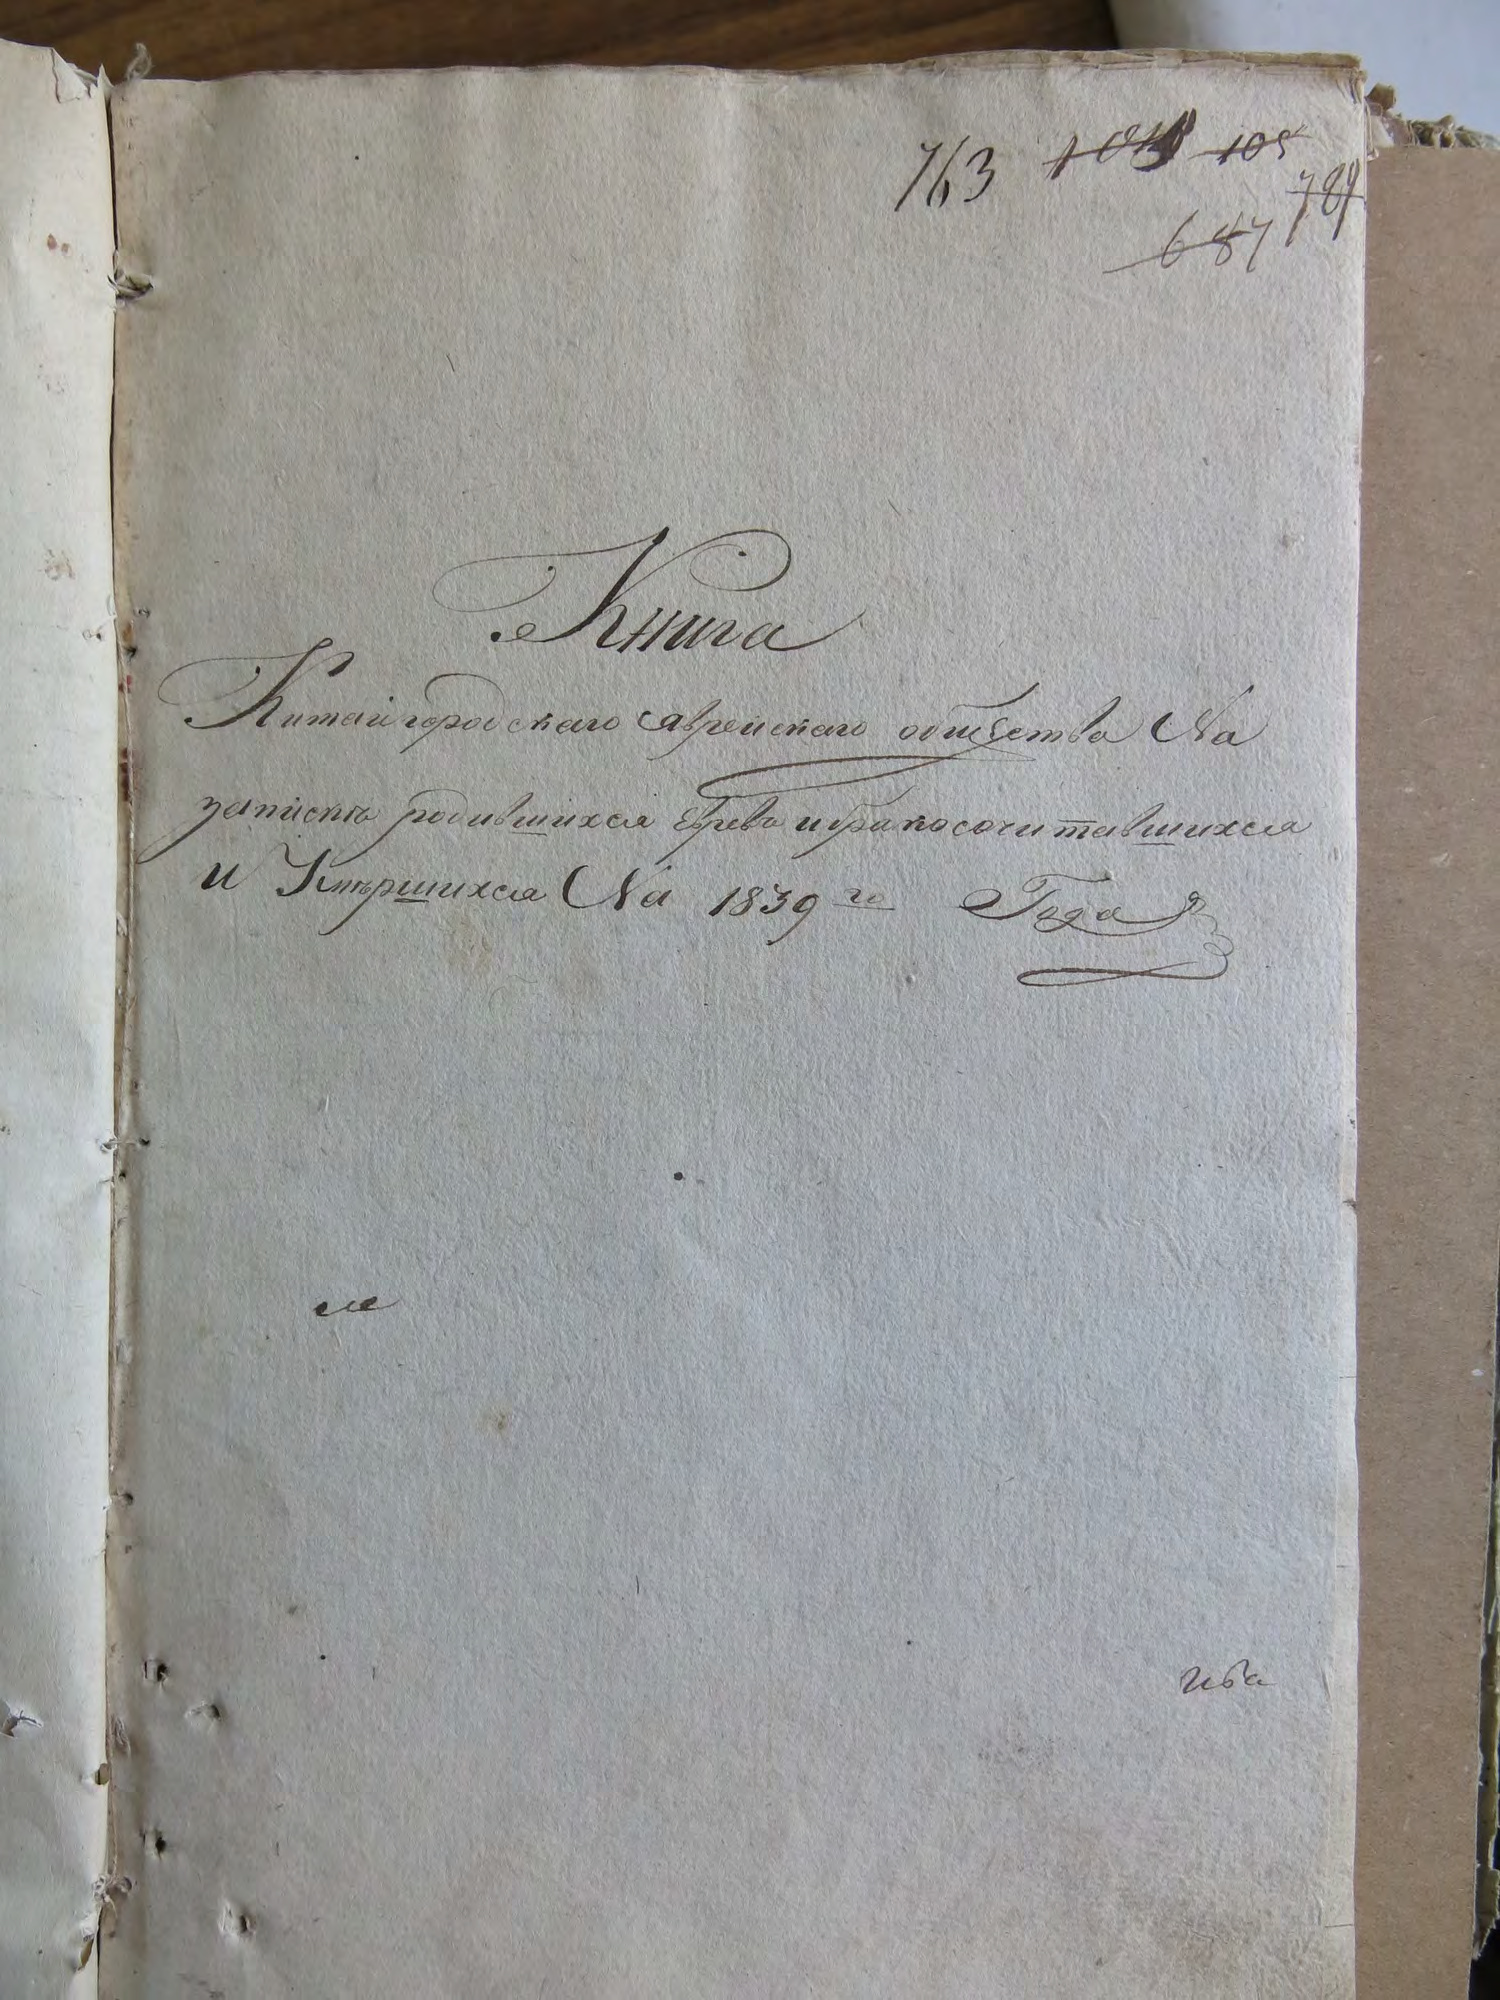 763 105
789
687
Книга
Китайгородскаго Яврейскаго общества На
запискъ родившихся Еврева и бракосочитавшихся
и Умѣршихся На 1839го Года